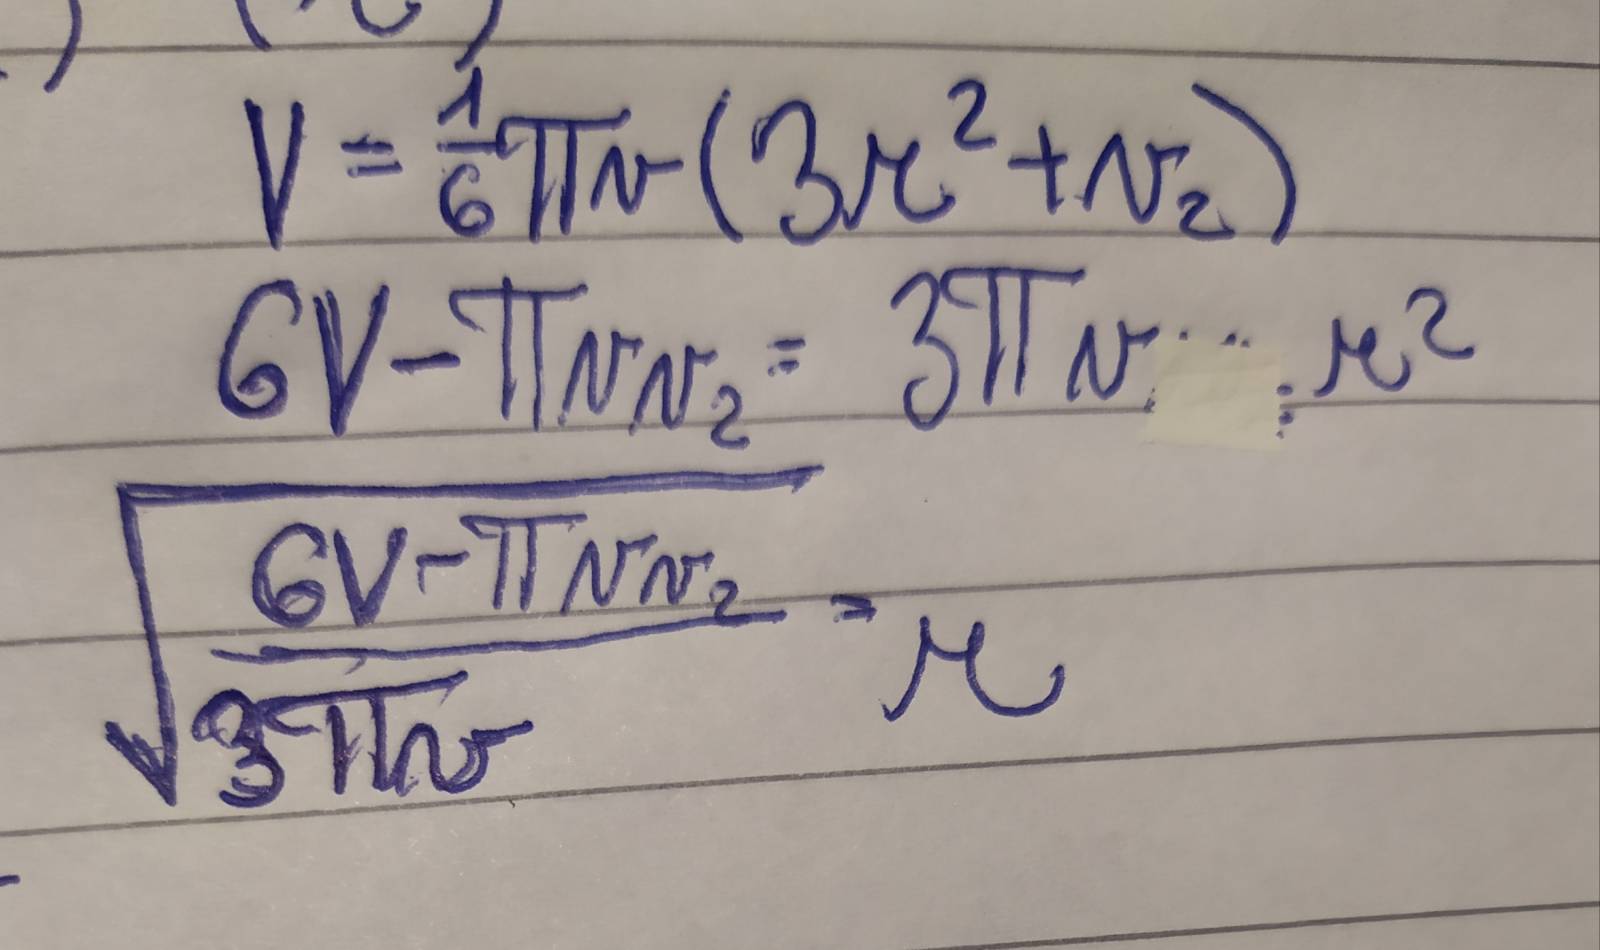 V = 1/6 πv (3r² + v₂)
6V - πvv₂ = 3πv r²
√((6V - πvv₂)/(3πv)) = r